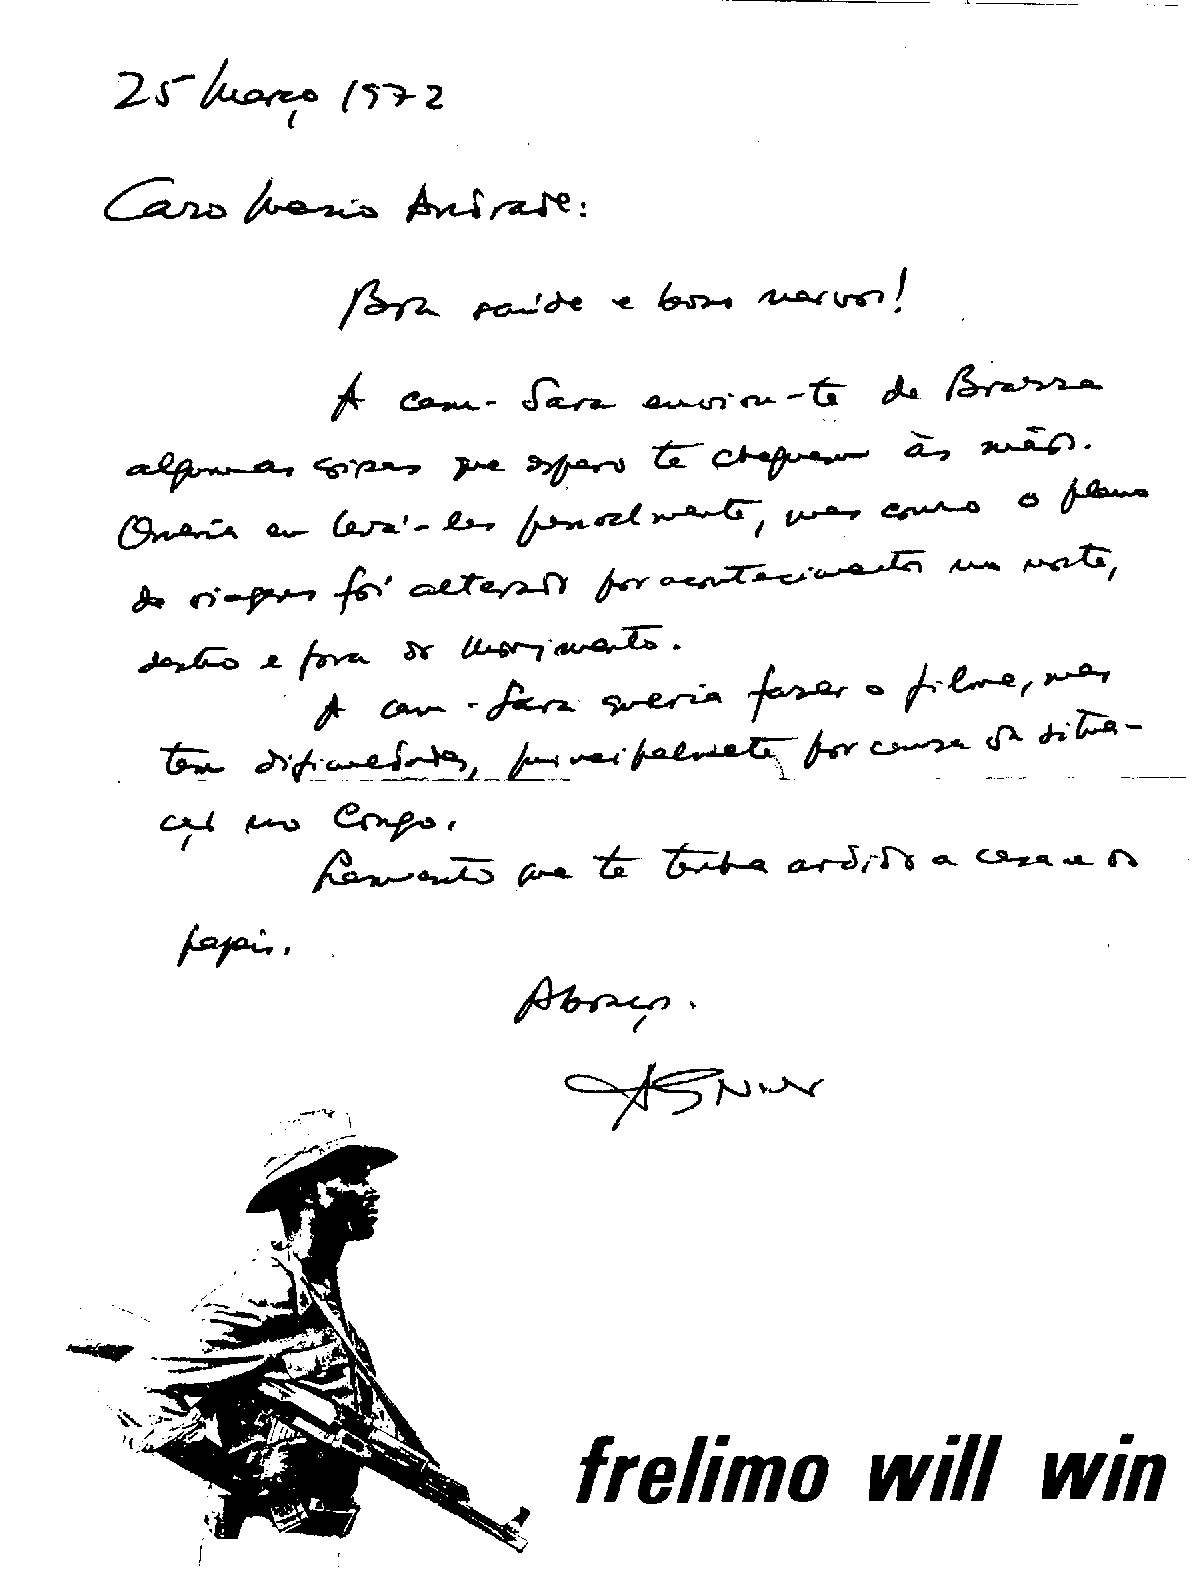 25 Março 1972
Caro Mario Andrade:
Boa saúde e bons nervos!
A cam. Sara enviou-te de Brazza
algumas coisas que espero te cheguem às mãos.
Queria eu levá-las pessoalmente, mas como o plano
de viagens foi alterado por acontecimentos no norte,
dentro e fora do Movimento.
A cam. Sara queria fazer o filme, mas
tem dificuldades, principalmente por causa da situa-
ção no Congo.
Lamento que te tenha ardido a casa e os
papeis.
Abraço.
frelimo will win